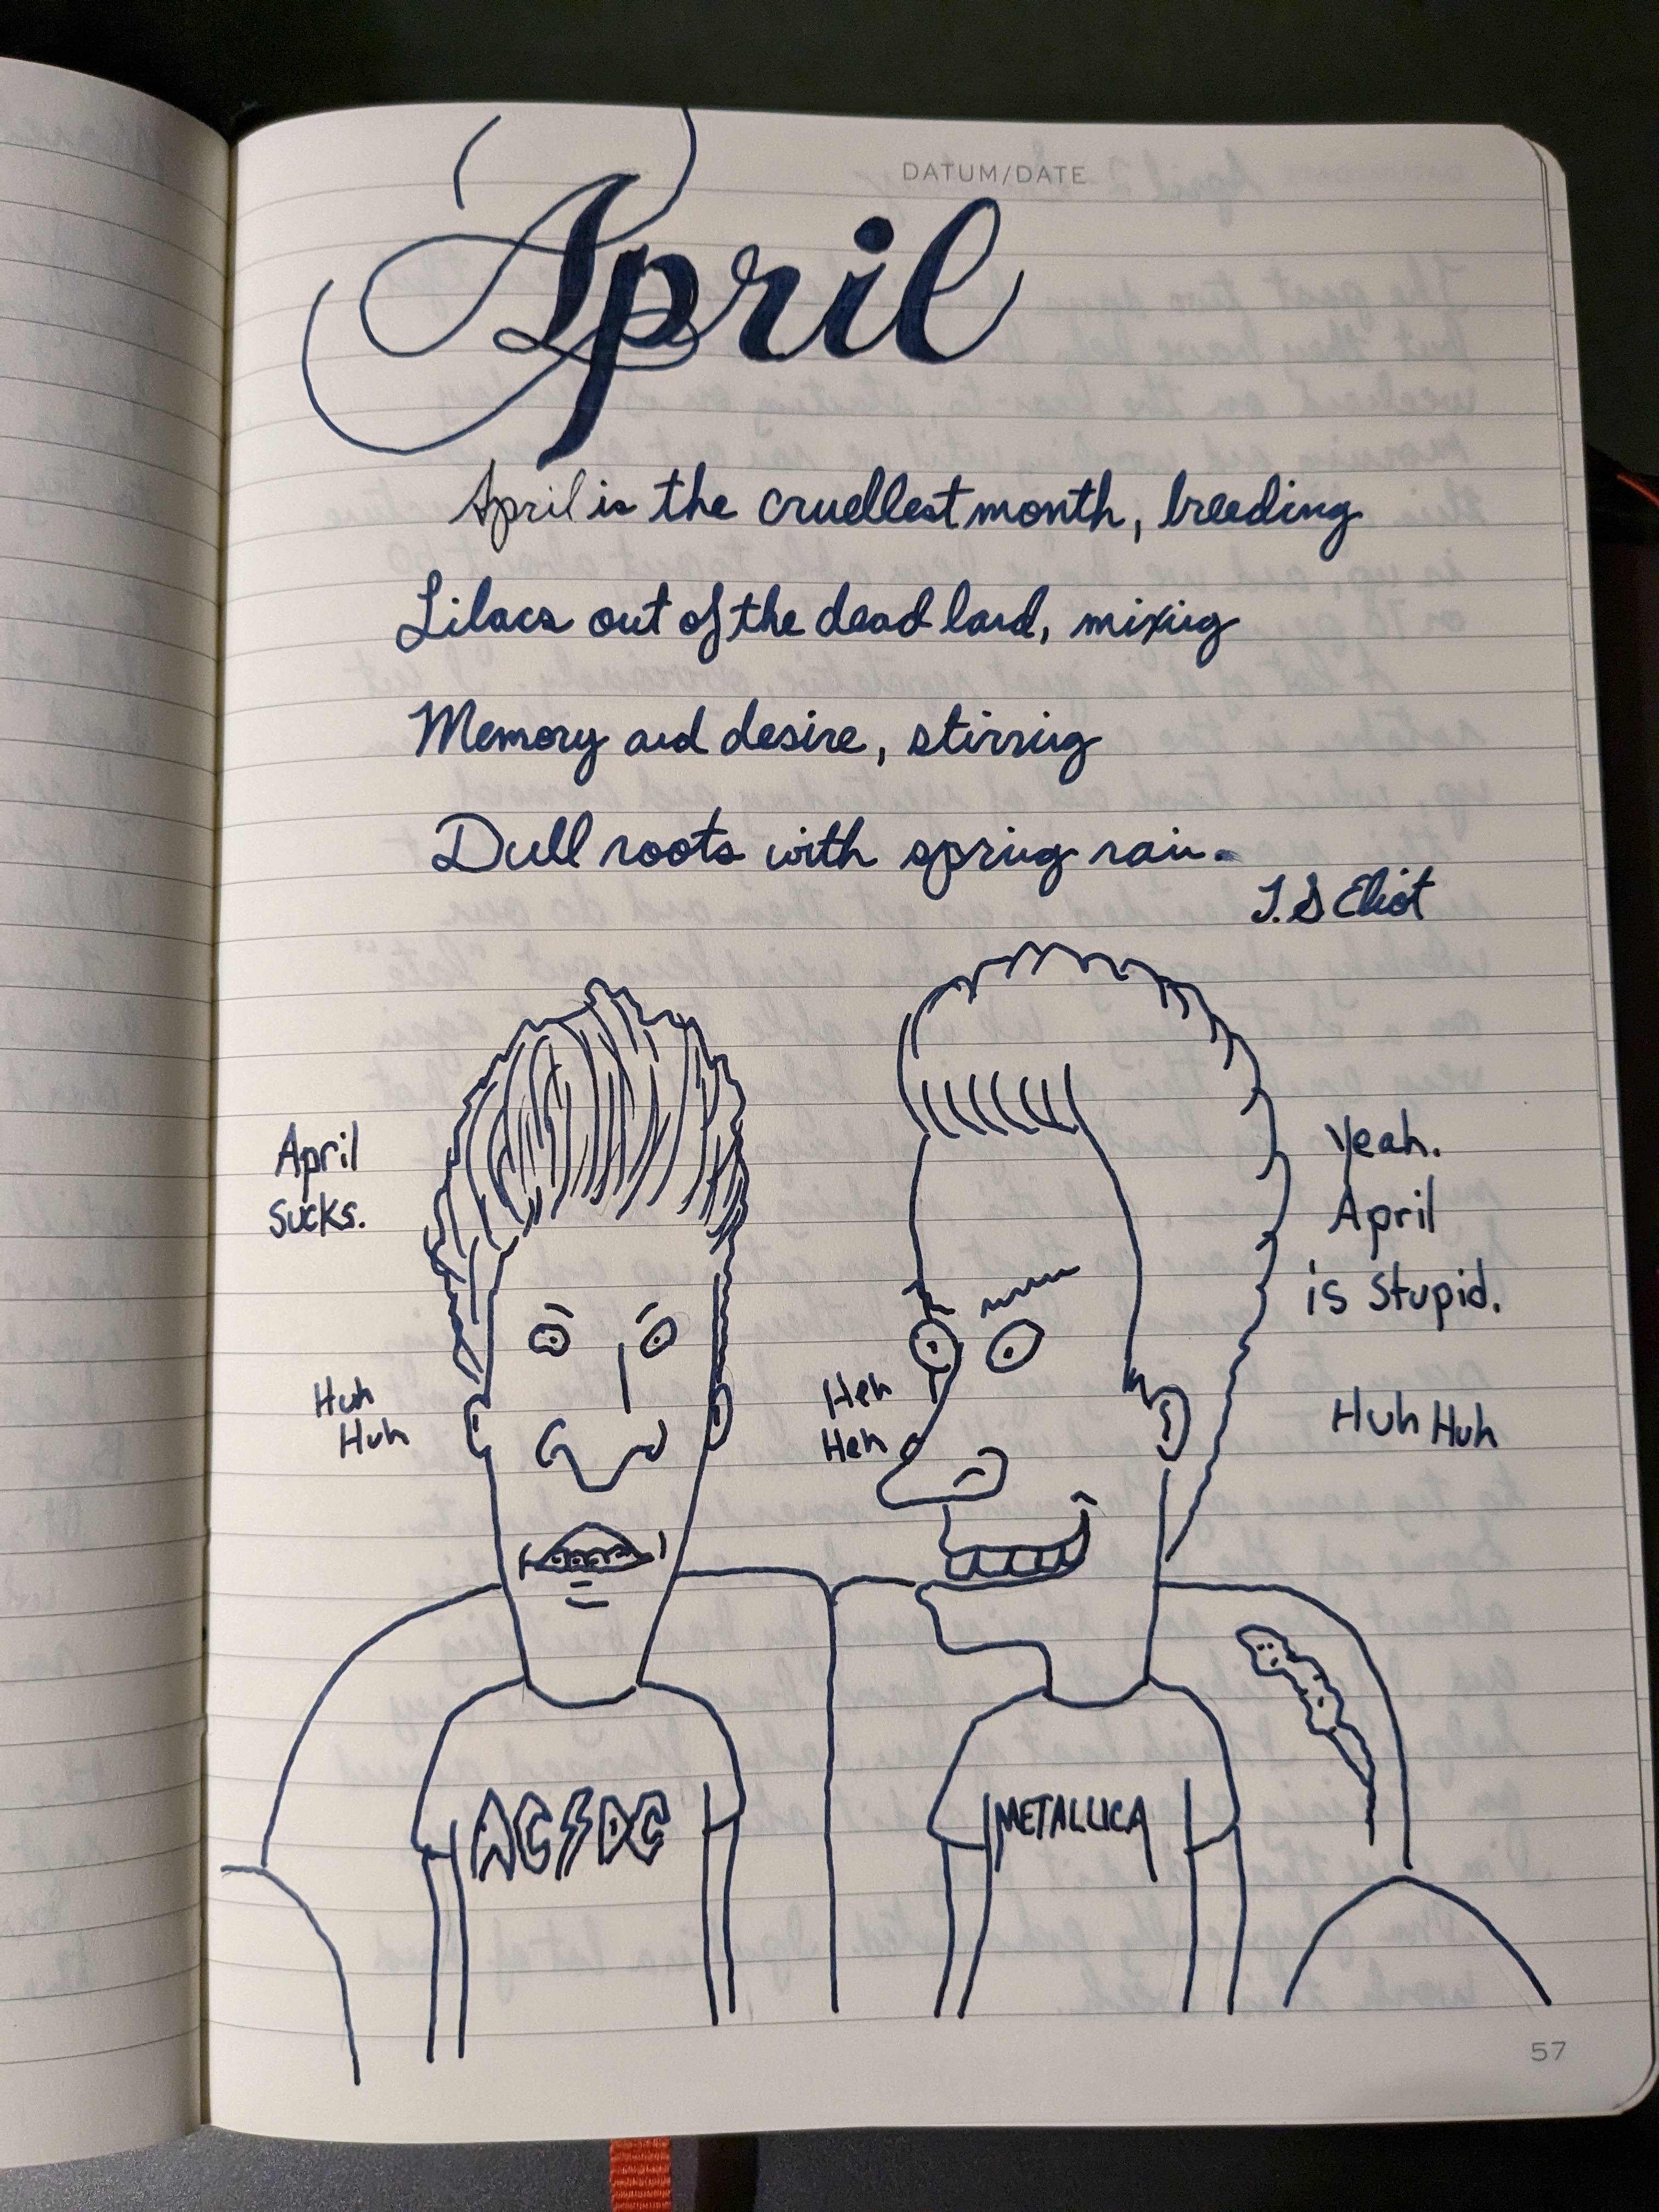 DATUM/DATE
April
April is the cruellest month, breeding
Lilacs out of the dead land, mixing
Memory and desire, stirring
Dull roots with spring rain.
T. S Eliot
April
Sucks.
Huh
Huh
Heh
Heh
Yeah.
April
is Stupid.
Huh Huh
AC⚡DC
METALLICA
57